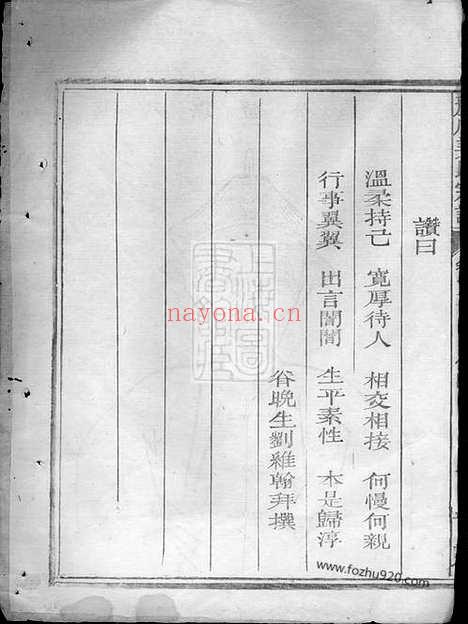 讚曰
溫柔持己 寬厚待人 相交相接 何慢何親
行事翼翼 出言誾誾 生平素性 本是歸淳
谷晚生劉維翰拜撰
nayona.cn
www.fozhu920.com